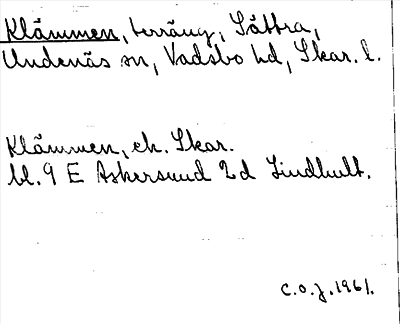 Klämmen, terräng, Sätra,
Undenäs sn, Vadsbo hd, Skar. l.
Klämmen, ek. Skar.
bl. 9 E Askersund 2d Lindhult.
C.O.J. 1961.